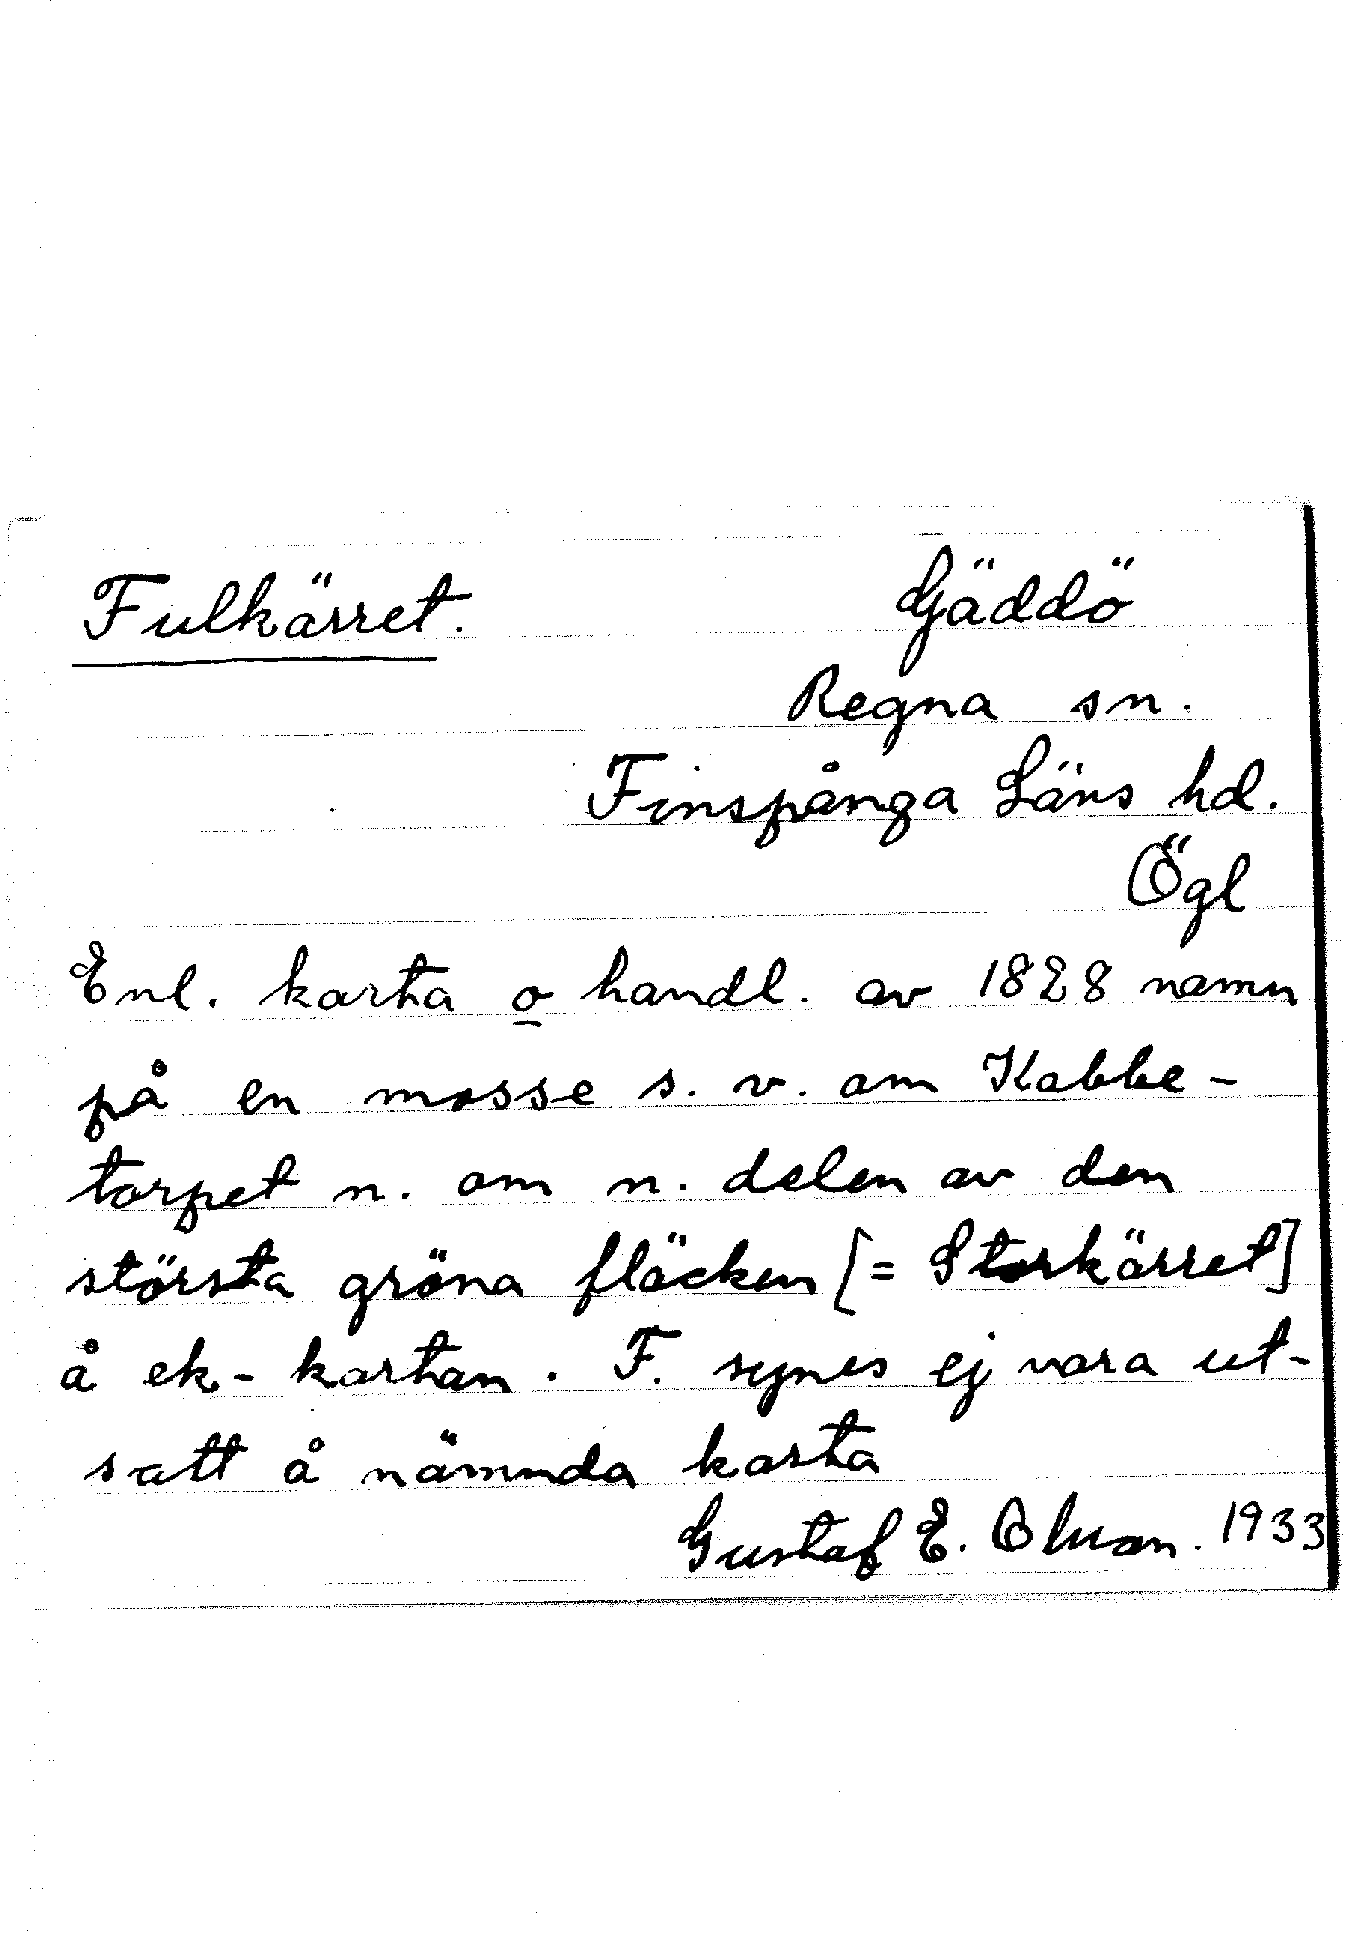 Fulkärret. Gäddö
Regna sn.
Finspånga Läns hd.
Ögl
Enl. karta o handl. av 1828 namn
på en mosse s. v. om Kabbe-
torpet n. om n. delen av den
största gröna fläcken [= Storkärret]
å ek-kartan. F. synes ej vara ut-
satt å nämnda karta
Gustaf E. Olsson. 1933